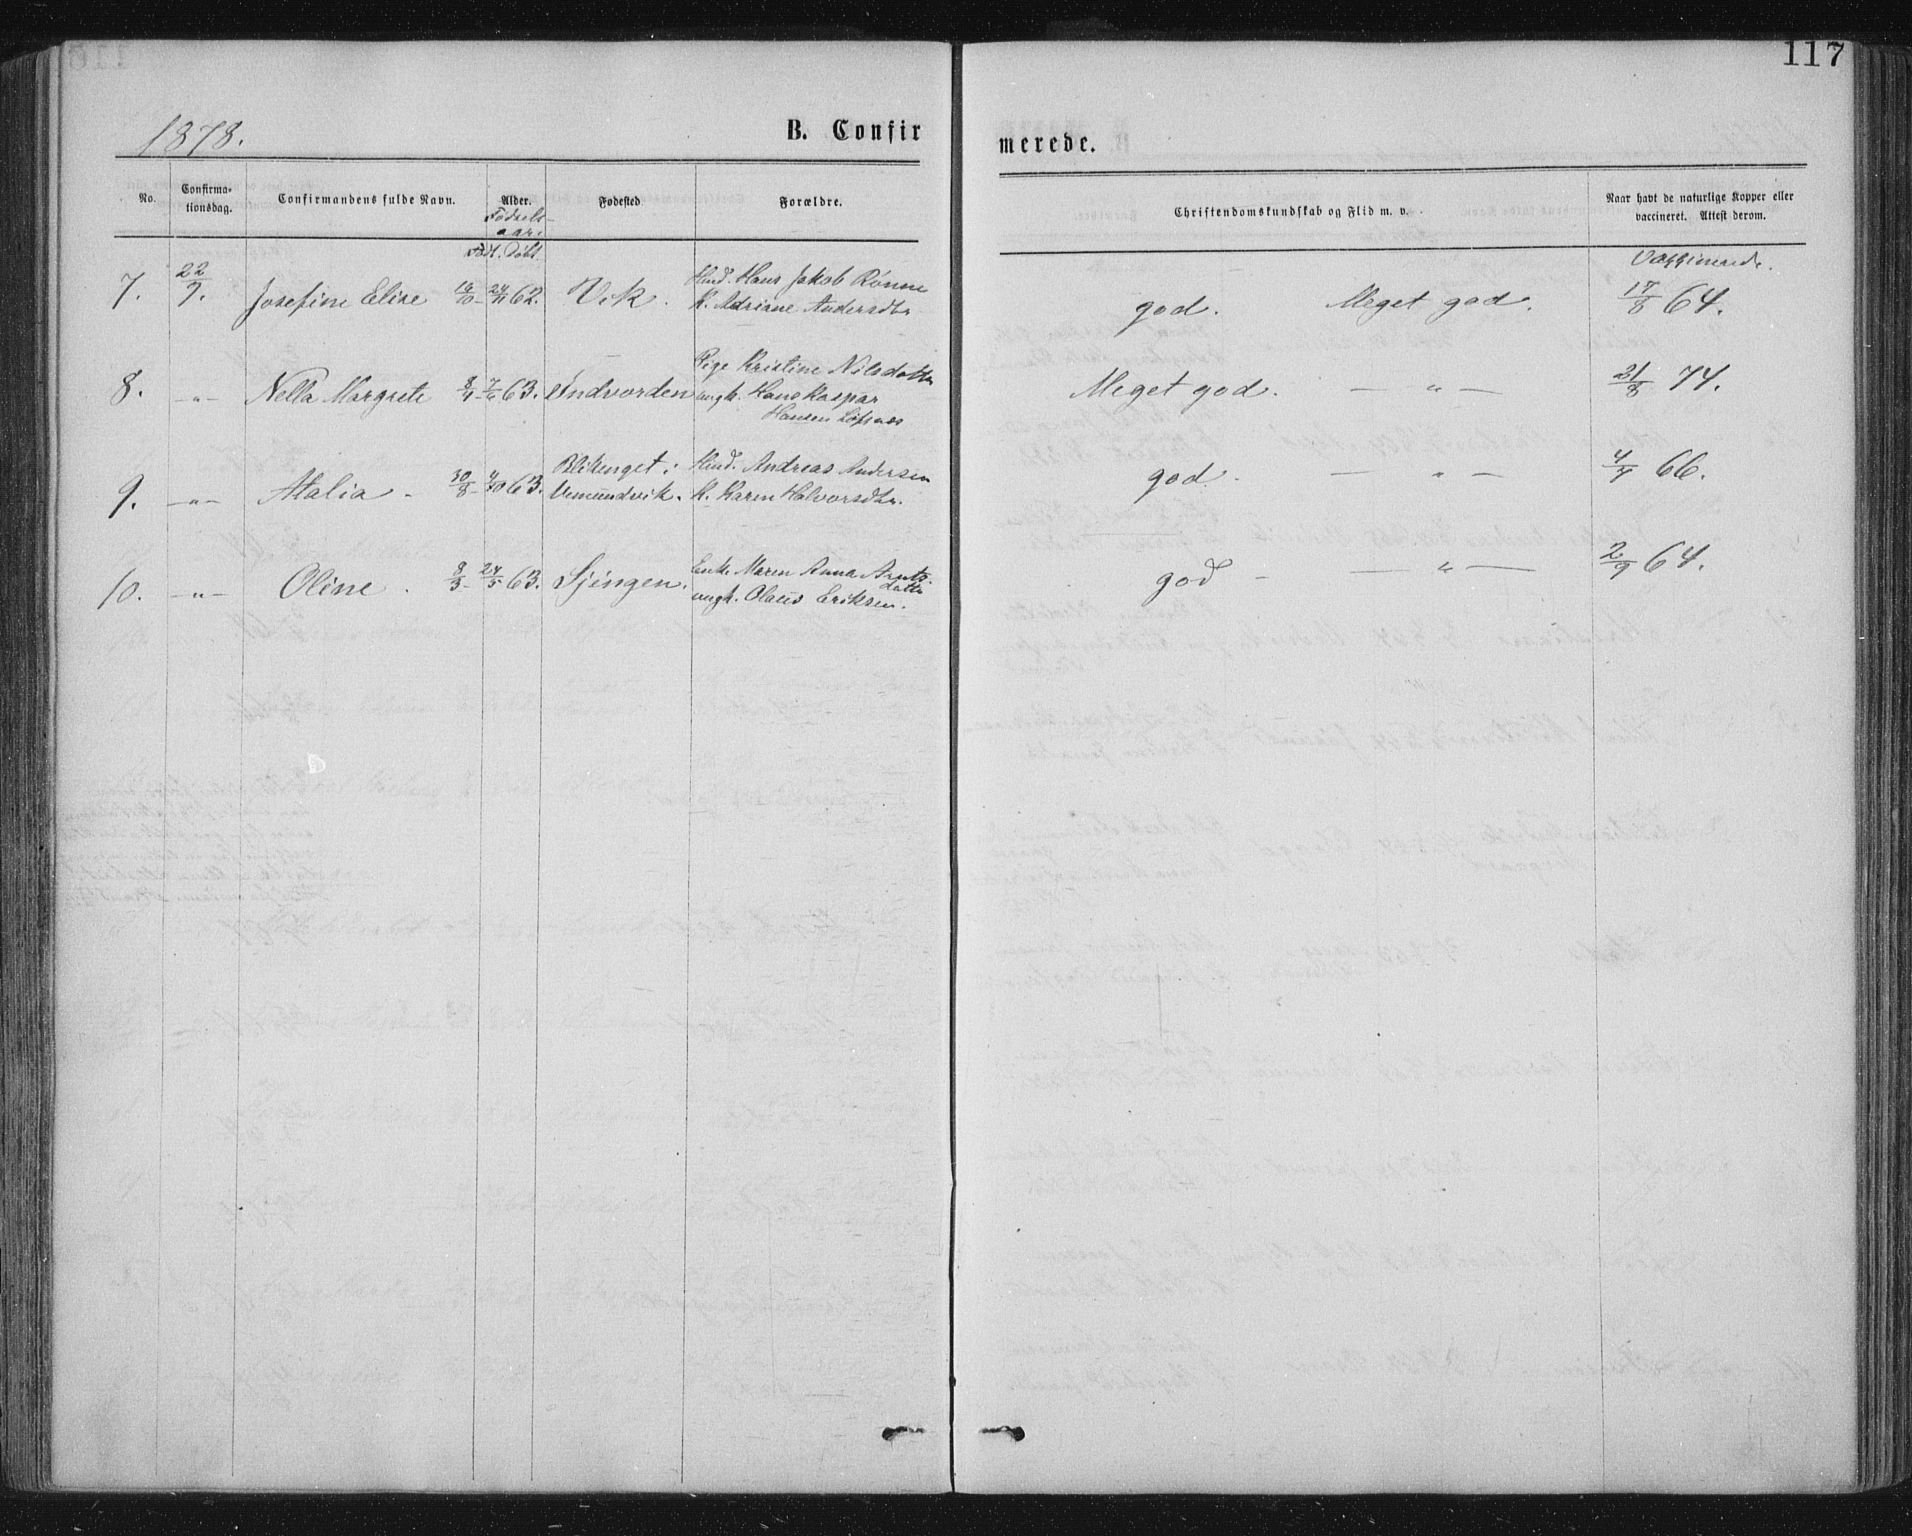 117
1878.
B. Confir
merede.
No.
Confirma-
tionsdag.
Confirmandens fulde Navn.
Alder.
Fødsels-
aar.
Fødested
Forældre.
Christendomskundskab og Flid m. v.
Naar havt de naturlige Kopper eller
vaccineret. Attest derom.
Født. Døbt.
7. 22/9. Josefine Elise 24/11 62. Vik. Hus. Hans Jakob Rønne
K. Adriane Andersdtr
god. Meget god. 17/8 64.
8. —„— Nella Margrete 63. Pige Kristine Nilsdatter
ungk. Hans Kaspar
Hansen
Meget god. — „ — 21/8 74.
9. —„— Atalia 30/8 63. i Hus. Andreas Andersen
Vemundvik. K. Karen Halvorsdtr.
god. — „ — 66.
10. —„— Oline. 8/3 - 24/5 63. Enke Maren Anna Arnts
datter
ungk. Olaus Eriksen.
god — „ — 2/9 64.